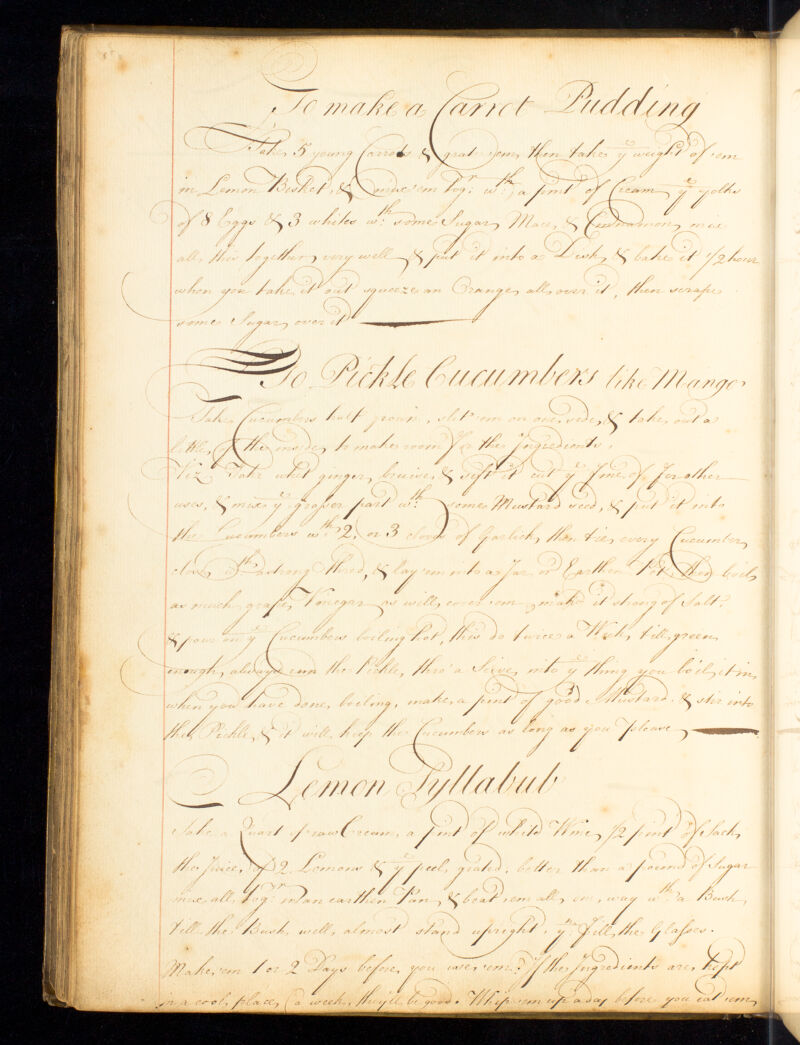 To make a Carrot Pudding
Take 5 young Carrots & grate 'em, then take ye weight of 'em
in Lemon Bisket, & mix 'em togr: wth: a pint of Cream ye yolks
of 8 Eggs & 3 whites wth: some Sugar, Mace, & Cinnamon, mix
all this together very well & put it into a Dish, & bake it 1/2 hour
when you take it out squeeze an Orange all over it, then scrape
some Sugar over it
To Pickle Cucumbers like Mango
Take Cucumbers half grown, slit 'em on one side, & take out a
little of the inside to make room for the Ingredients.
Viz Take whit ginger, bruise, & sift it cut ye fine of for other
uses, & mix ye groser part wth: some Mustard seed, & put it into
the Cucumbers wth: 2, or 3 cloves of Garlick, then tie every Cucumber
wth strong thred, & lay 'em into a Jar or Earthen Pot, then boil
as much Vinegar as will cover 'em, make it strong of Salt.
& pour on ye Cucumbers boiling hot, this do twice a Week, till green
enough, always run the Pickle, thro' a Sieve into ye thing you boil it in,
when you have done boiling, make a pint of good Mustard & stir into
the Pickle, & it will keep the Cucumbers as long as you please
Lemon Syllabub
Take a Quart of raw Cream, a pint of white Wine, 1/2 pint of Sack,
the Juice of 2 Lemons & ye peel, grated, better than a pound of Sugar
mix all togr in an earthen Pan, & beat 'em all one way wth: a Bush,
till the Bush will almost stand upright. yn: Fill the Glasses.
Make 'em 1 or 2 Days before you use 'em. If the Ingredients are kept
in a cool place, (a week, they'll be good. Whip 'em up a day before you eat 'em,